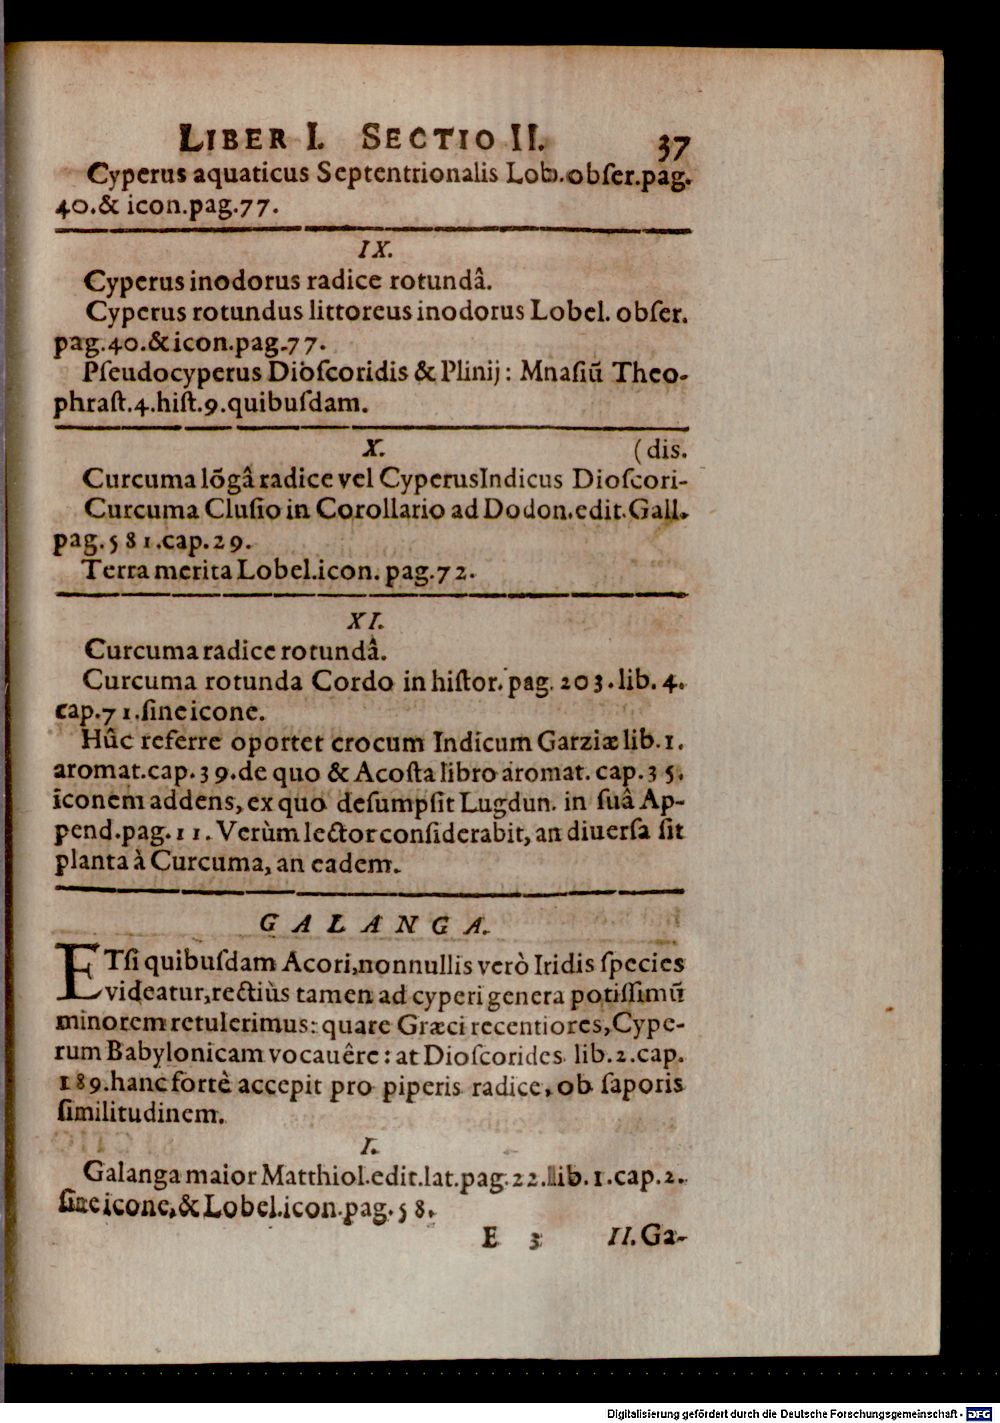 LIBER I. SECTIO II. 37
Cyperus aquaticus Septentrionalis Lob. obſer.pag.
40.& icon.pag.77.
IX.
Cyperus inodorus radice rotundâ.
Cyperus rotundus littoreus inodorus Lobel. obſer.
pag.40.& icon.pag.77.
Pſeudocyperus Dioſcoridis & Plinij: Mnaſiũ Theo-
phraſt.4.hiſt.9.quibuſdam.
X. (dis.
Curcuma lõgâ radice vel Cyperus Indicus Dioſcori-
Curcuma Cluſio in Corollario ad Dodon.edit.Gall.
pag.581.cap.29.
Terra merita Lobel.icon.pag.72.
XI.
Curcuma radice rotundâ.
Curcuma rotunda Cordo in hiſtor. pag. 203. lib. 4.
cap.71.ſine icone.
Hûc referre oportet crocum Indicum Garziæ lib.1.
aromat.cap.39.de quo & Acoſta libro aromat. cap.35.
iconem addens, ex quo deſumpſit Lugdun. in ſuâ Ap-
pend.pag.11. Verùm lector conſiderabit, an diuerſa ſit
planta à Curcuma, an eadem.
GALANGA.
ETſi quibuſdam Acori, nonnullis verò Iridis ſpecies
videatur, rectiùs tamen ad cyperi genera potiſſimũ
minorem retulerimus: quare Græci recentiores, Cype-
rum Babylonicam vocauêre: at Dioſcorides lib.2.cap.
189.hanc fortè accepit pro piperis radice, ob ſaporis
ſimilitudinem.
I.
Galanga maior Matthiol.edit.lat.pag.22.lib.1.cap.2.
ſine icone, & Lobel.icon.pag.58.
E 3 II.Ga-
Digitalisierung gefördert durch die Deutsche Forschungsgemeinschaft - DFG